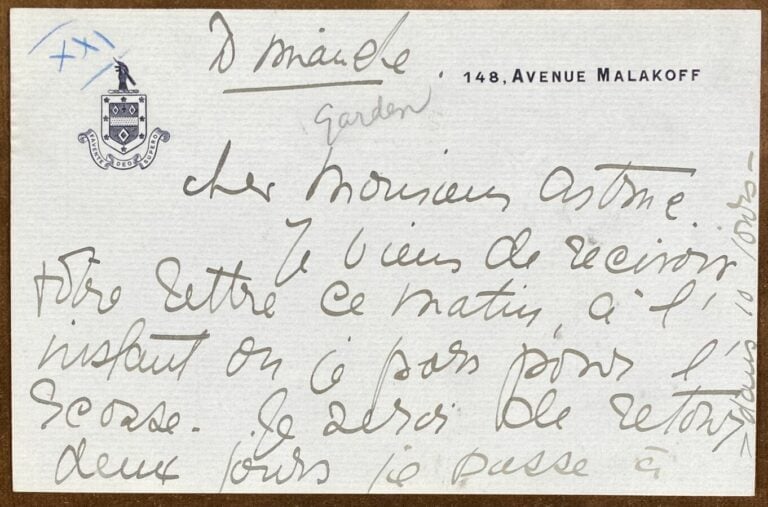 (XX)
Dimanche.
148, AVENUE MALAKOFF
FAVENTE DEO SUPERO
Garden
Cher Monsieur Astruc
Je viens de recevoir
votre lettre ce matin, à l'
instant ou je pars pour l'
Ecosse. Je serai de retour
- dans 10 jours -
deux jours je passe à